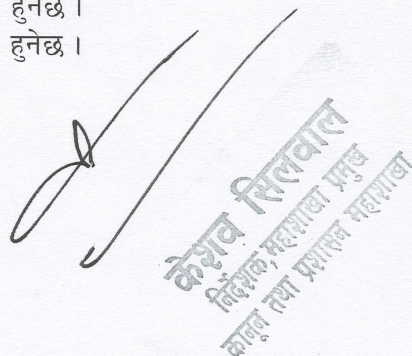 हुनेछ ।
हुनेछ ।
केशव सिलवाल
निर्देशक, महाशाखा प्रमुख
कानून तथा प्रशासन महाशाखा